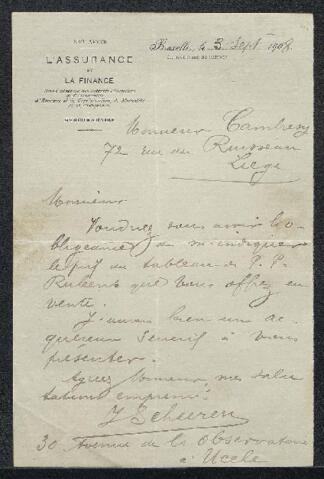 L'ASSURANCE
ET
LA FINANCE
Bruxelles, le 3 Sept 1908
Monsieur Cambresy
72 rue du Ruisseau
Liège
Monsieur
Voudriez vous avoir l'o-
bligeance de m'indiquer
le prix du tableau de P. P.
Rubens que vous offrez en
vente.
J'aurais bien un ac-
quéreur sérieux à vous
présenter.
Agréez Monsieur, mes salu
tations empressées
J Scheeren
30 Avenue de l'Observatoire
à Uccle